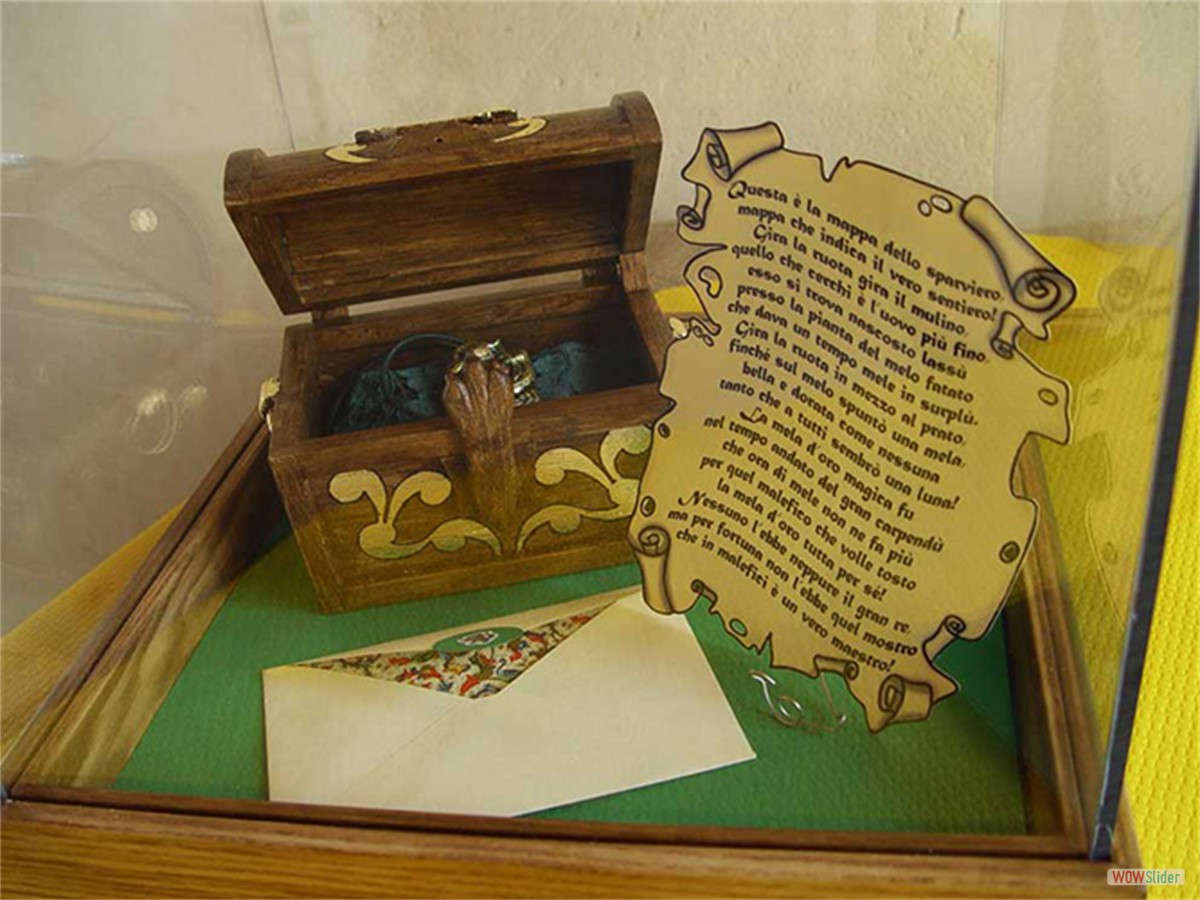 Questa è la mappa dello sparviero,
mappa che indica il vero sentiero!
Gira la ruota gira il mulino,
quello che cerchi è l'uovo più fino,
esso si trova nascosto lassù
presso la pianta del melo fatato
che dava un tempo mele in surplù.
Gira la ruota in mezzo al prato,
finché sul melo spuntò una mela,
bella e dorata come nessuna
tanto che a tutti sembrò una luna!
La mela d'oro magica fu
nel tempo andato del gran carpendù
che ora di mele non ne fa più
per quel malefico che volle tosto
la mela d'oro tutta per sé!
Nessuno l'ebbe neppure il gran re,
ma per fortuna non l'ebbe quel mostro
che in malefici è un vero maestro!
WOWSlider